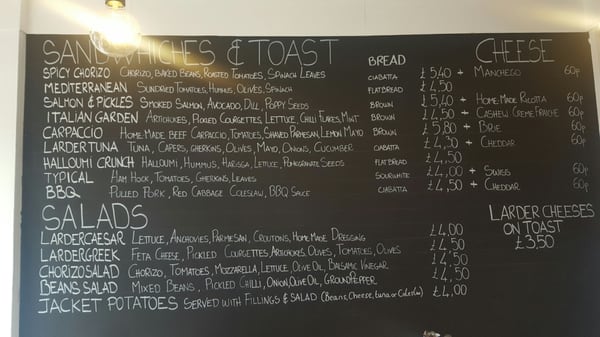 SANDWHICHES & TOAST BREAD CHEESE
SPICY CHORIZO CHORIZO, BAKED BEANS, ROASTED TOMATOES, SPINACH LEAVES CIABATTA £5,40 + MANCHEGO 60p
MEDITERRANEAN SUNDRIED TOMATOES, HUMUS, OLIVES, SPINACH FLATBREAD £4,50
SALMON & PICKLES SMOKED SALMON, AVOCADO, DILL, POPPY SEEDS BROWN £5,40 + HOME MADE RICOTTA 60p
ITALIAN GARDEN ARTICHOKES, PICKLED COURGETTES, LETTUCE, CHILLI FLAKES, MINT BROWN £4,50 + CASHEW CREME FRAICHE 60p
CARPACCIO HOME MADE BEEF CARPACCIO, TOMATOES, SHAVED PARMESAN, LEMON MAYO BROWN £5,80 + BRIE 60p
LARDER TUNA TUNA, CAPERS, GHERKINS, OLIVES, MAYO, ONIONS, CUCUMBER CIABATTA £4,30 + CHEDDAR 60p
HALLOUMI CRUNCH HALLOUMI, HUMMUS, HARISSA, LETTUCE, POMEGRANATE SEEDS FLATBREAD £4,50
TYPICAL HAM HOCK, TOMATOES, GHERKINS, LEAVES SOURWHITE £4,00 + SWISS 60p
BBQ PULLED PORK, RED CABBAGE COLESLAW, BBQ SAUCE CIABATTA £4,50 + CHEDDAR 60p
SALADS
LARDERCAESAR LETTUCE, ANCHOVIES, PARMESAN, CROUTONS, HOME MADE DRESSING £4,00
LARDERGREEK FETA CHEESE, PICKLED COURGETTES, ARTICHOKES, OLIVES, TOMATOES, OLIVES £4,50
CHORIZO SALAD CHORIZO, TOMATOES, MOZZARELLA, LETTUCE, OLIVE OIL, BALSAMIC VINEGAR £4,50
BEANS SALAD MIXED BEANS, PICKLED CHILLI, ONION, OLIVE OIL, GROUND PEPPER £4,50
JACKET POTATOES SERVED WITH FILLINGS & SALAD (Beans, Cheese, tuna or Coleslaw) £4,00
LARDER CHEESES
ON TOAST
£3,50